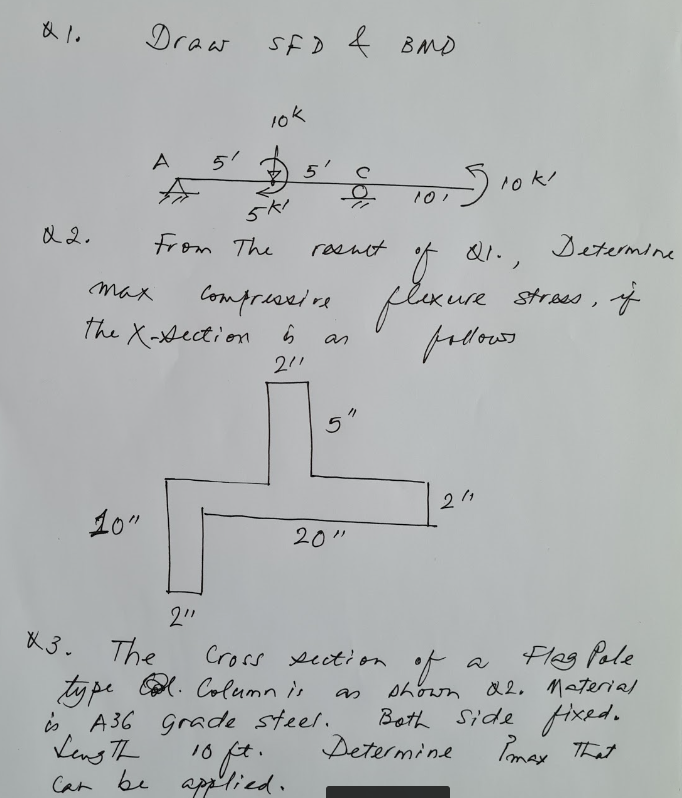 Q1. Draw SFD & BMD
10k
A 5' 5' C
5k' 10' 10k'
Q2. From The result of Q1., Determine
max compressive flexure stress, if
the X-section is as follows
2"
5"
10" 2"
20"
2"
Q3. The Cross section of a Flag Pole
type Column is as shown Q2. Material
is A36 grade steel. Both side fixed.
Length 10 ft. Determine Pmax That
can be applied.